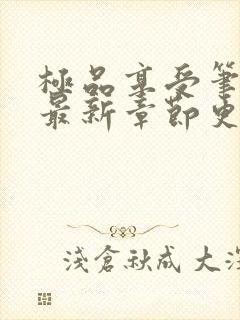 極品享受筆
最新章節史
淺倉秋成 大深